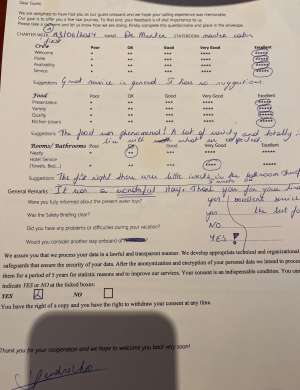 Dear Guest,
We are delighted to have had you as our guest onboard and we hope your sailing experience was memorable.
Our goal is to offer you a five star journey. To that end, your feedback is of vital importance to us.
Please take a moment and let us know how we are doing. Kindly complete this questionnaire and place in the envelope.
CHARTER DATE 23/06/2024 NAME STATEROOM master cabin
Crew Poor OK Good Very Good Excellent
Welcome * ** *** **** *****
Polite * ** *** **** *****
Availability * ** *** **** *****
Service * ** *** **** *****
Suggestions Great service in general I have no suggestions
Food Poor OK Good Very Good Excellent
Presentation * ** *** **** *****
Variety * ** *** **** *****
Quality * ** *** **** *****
Kitchen Linens * ** *** **** *****
Suggestions The food was phenomenal! A lot of variety and totally in
line with what we expected
Rooms/ Bathrooms Poor OK Good Very Good Excellent
Facility * ** *** **** *****
Hotel Service
(Towels, Bed...) * ** *** **** *****
Suggestions The first night there was little water in the bathroom
General Remarks It was a wonderful stay. Thank you for your
Were you fully informed about the present water toys? yes! excellent service
Was the Safety Briefing clear? yes the best
Did you have any problems or difficulties during your vacation? NO
Would you consider another stay onboard of YES!
We assure you that we process your data in a lawful and transparent manner. We develop appropriate technical and organizational
safeguards that ensure the security of your data. After the anonymization and encryption of your personal data we intend to process
them for a period of 5 years for statistic reasons and to improve our services. Your consent is an indispensable condition. You can
indicate YES or NO at the ticked boxes:
YES NO
You have the right of a copy and you have the right to withdraw your consent at any time.
Thank you for your cooperation and we hope to welcome you back very soon!